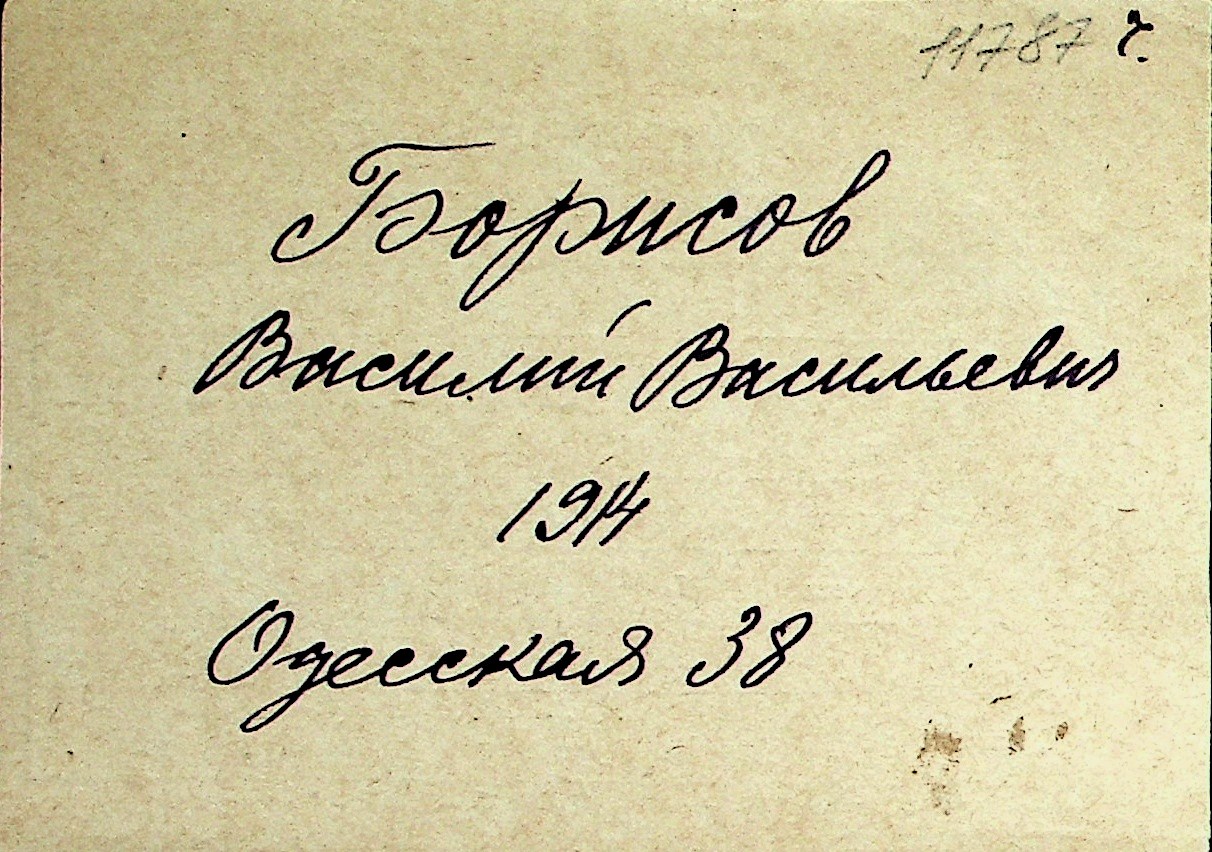 11787 г.
Борисов
Василий Васильевич
1914
Одесская 38